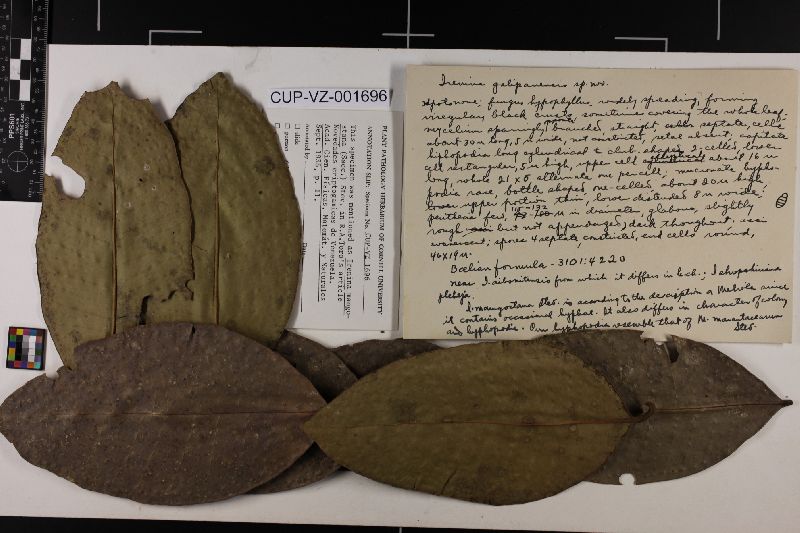 CUP-VZ-001696
PLANT PATHOLOGY HERBARIUM OF CORNELL UNIVERSITY
ANNOTATION SLIP: Specimen No. CUP-VZ 1696
This specimen was mentioned as Irenina mangostana (Sacc.) Stev. in R.A.Toro's article
Novedades criptogámicas de Venezuela.
Acad. Cien. Físicas, Matemát. y Naturales
Sept. 1935, p. 11.
□ disk
□ person
removed by
Date
Irenina galipanensis sp. nov.
fungus hypophyllus widely spreading, forming
irregular black crusts, sometimes covering the whole leaf.
mycelium sparingly branched, straight cells septate, cells
about 30 u long, 5 u wide, not constricted, setae absent, capitate
hyphopodia long cylindrical to club-shaped, 2-celled, lower
cell rectangular, 5 u high, upper cell about 16 u
long, whole 21 x 8 alternate one per cell; mucronate hypho-
podia rare, bottle shaped one-celled, about 20 u high
lower upper portion thin, lower 8 u wide;
perithecia few, 115-132 u in diameter, globose, slightly
rough but not appendaged, dark throughout, asci
evanescent; spores 4 septate constricted, end cells round,
46 x 19 u.
Beelian formula - 3101:4220
near I. aibonitensis from which it differs in
I. mangostana Stev. is according to the description a Meliola since
it contains occasional hyphae. It also differs in character of colony
and hyphopodia. Our hyphopodia resemble that of
Stev.